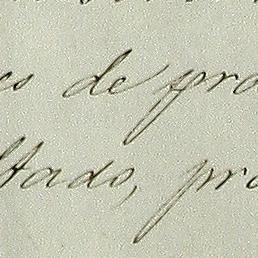 es de pra
ltado, pro